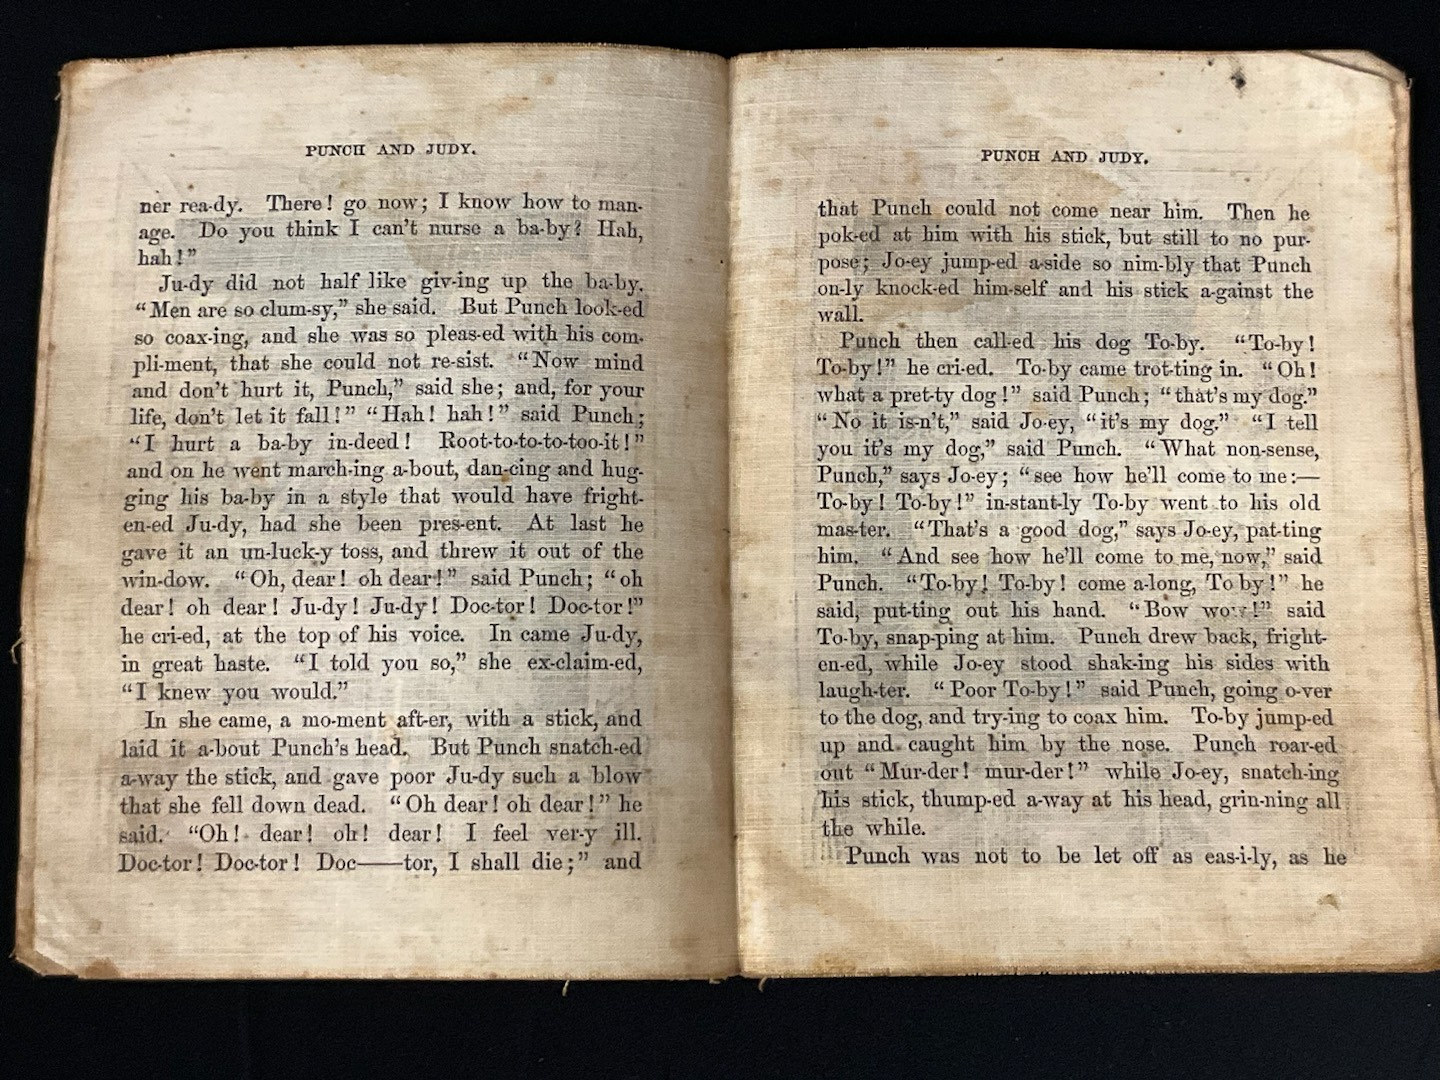 PUNCH AND JUDY.
ner rea-dy. There! go now; I know how to man-
age. Do you think I can't nurse a ba-by? Hah,
hah!"
Ju-dy did not half like giv-ing up the ba-by.
"Men are so clum-sy," she said. But Punch look-ed
so coax-ing, and she was so pleas-ed with his com-
pli-ment, that she could not re-sist. "Now mind
and don't hurt it, Punch," said she; and, for your
life, don't let it fall!" "Hah! hah!" said Punch;
"I hurt a ba-by in-deed! Root-to-to-to-too-it!"
and on he went march-ing a-bout, dan-cing and hug-
ging his ba-by in a style that would have fright-
en-ed Ju-dy, had she been pres-ent. At last he
gave it an un-luck-y toss, and threw it out of the
win-dow. "Oh, dear! oh dear!" said Punch; "oh
dear! oh dear! Ju-dy! Ju-dy! Doc-tor! Doc-tor!"
he cri-ed, at the top of his voice. In came Ju-dy,
in great haste. "I told you so," she ex-claim-ed,
"I knew you would."
In she came, a mo-ment aft-er, with a stick, and
laid it a-bout Punch's head. But Punch snatch-ed
a-way the stick, and gave poor Ju-dy such a blow
that she fell down dead. "Oh dear! oh dear!" he
said. "Oh! dear! oh! dear! I feel ver-y ill.
Doc-tor! Doc-tor! Doc——tor, I shall die;" and
PUNCH AND JUDY.
that Punch could not come near him. Then he
pok-ed at him with his stick, but still to no pur-
pose; Jo-ey jump-ed a-side so nim-bly that Punch
on-ly knock-ed him-self and his stick a-gainst the
wall.
Punch then call-ed his dog To-by. "To-by!
To-by!" he cri-ed. To-by came trot-ting in. "Oh!
what a pret-ty dog!" said Punch; "that's my dog."
"No it is-n't," said Jo-ey, "it's my dog." "I tell
you it's my dog," said Punch. "What non-sense,
Punch," says Jo-ey; "see how he'll come to me:—
To-by! To-by!" in-stant-ly To-by went to his old
mas-ter. "That's a good dog," says Jo-ey, pat-ting
him. "And see how he'll come to me, now," said
Punch. "To-by! To-by! come a-long, To by!" he
said, put-ting out his hand. "Bow wow!" said
To-by, snap-ping at him. Punch drew back, fright-
en-ed, while Jo-ey stood shak-ing his sides with
laugh-ter. "Poor To-by!" said Punch, going o-ver
to the dog, and try-ing to coax him. To-by jump-ed
up and caught him by the nose. Punch roar-ed
out "Mur-der! mur-der!" while Jo-ey, snatch-ing
his stick, thump-ed a-way at his head, grin-ning all
the while.
Punch was not to be let off as eas-i-ly, as he